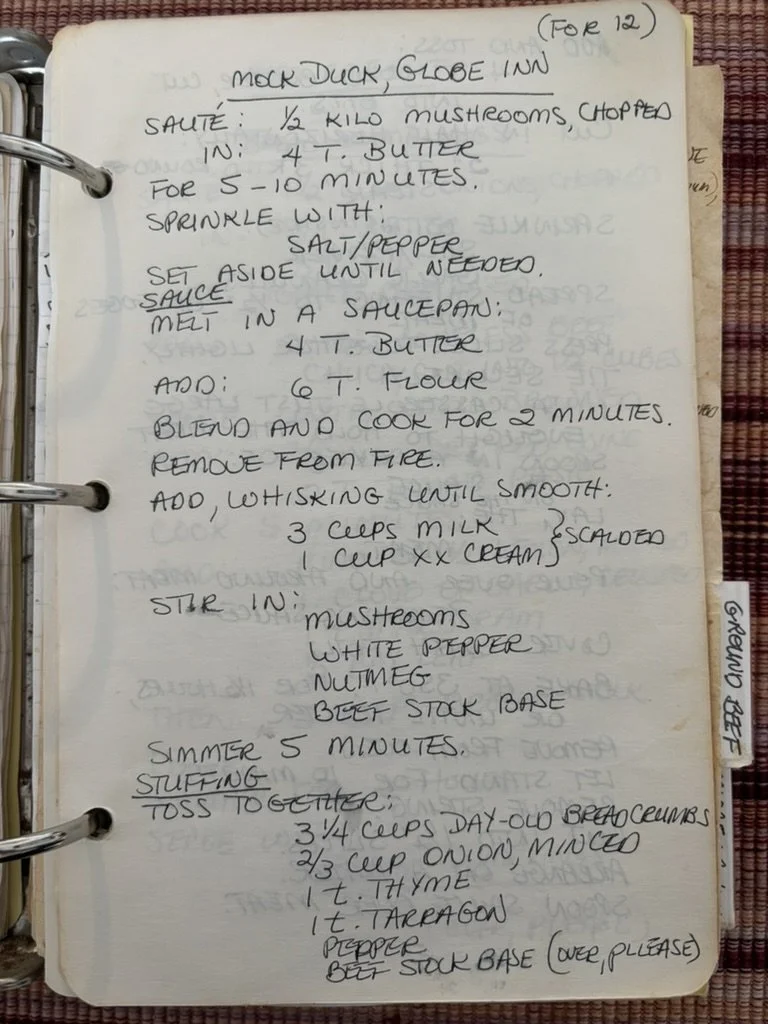 (FOR 12)
MOCK DUCK, GLOBE INN
SAUTÉ: 1/2 KILO MUSHROOMS, CHOPPED
IN: 4 T. BUTTER
FOR 5-10 MINUTES.
SPRINKLE WITH:
SALT/PEPPER
SET ASIDE UNTIL NEEDED.
SAUCE
MELT IN A SAUCEPAN:
4 T. BUTTER
ADD: 6 T. FLOUR
BLEND AND COOK FOR 2 MINUTES.
REMOVE FROM FIRE.
ADD, WHISKING UNTIL SMOOTH:
3 CUPS MILK
1 CUP XX CREAM } SCALDED
STIR IN:
MUSHROOMS
WHITE PEPPER
NUTMEG
BEEF STOCK BASE
SIMMER 5 MINUTES.
STUFFING
TOSS TOGETHER:
3 1/4 CUPS DAY-OLD BREADCRUMBS
2/3 CUP ONION, MINCED
1 t. THYME
1 t. TARRAGON
PEPPER
BEEF STOCK BASE (OVER, PLLEASE)
GROUND BEEF